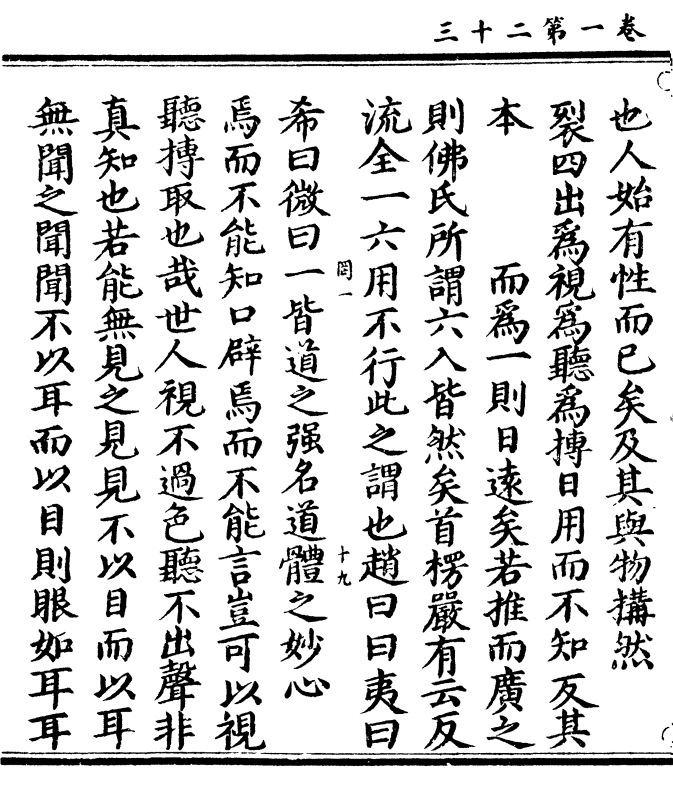 卷一第二十三
也人始有性而已矣及其與物搆然
裂四出爲視爲聽爲摶日用而不知反其
本 而爲一則日遠矣若推而廣之
則佛氏所謂六入皆然矣首楞嚴有云反
流全一六用不行此之謂也趙曰曰夷曰
罔一 十九
希曰微曰一皆道之强名道體之妙心
焉而不能知口辟焉而不能言豈可以視
聽摶取也哉世人視不過色聽不出聲非
真知也若能無見之見見不以目而以耳
無聞之聞聞不以耳而以目則眼如耳耳